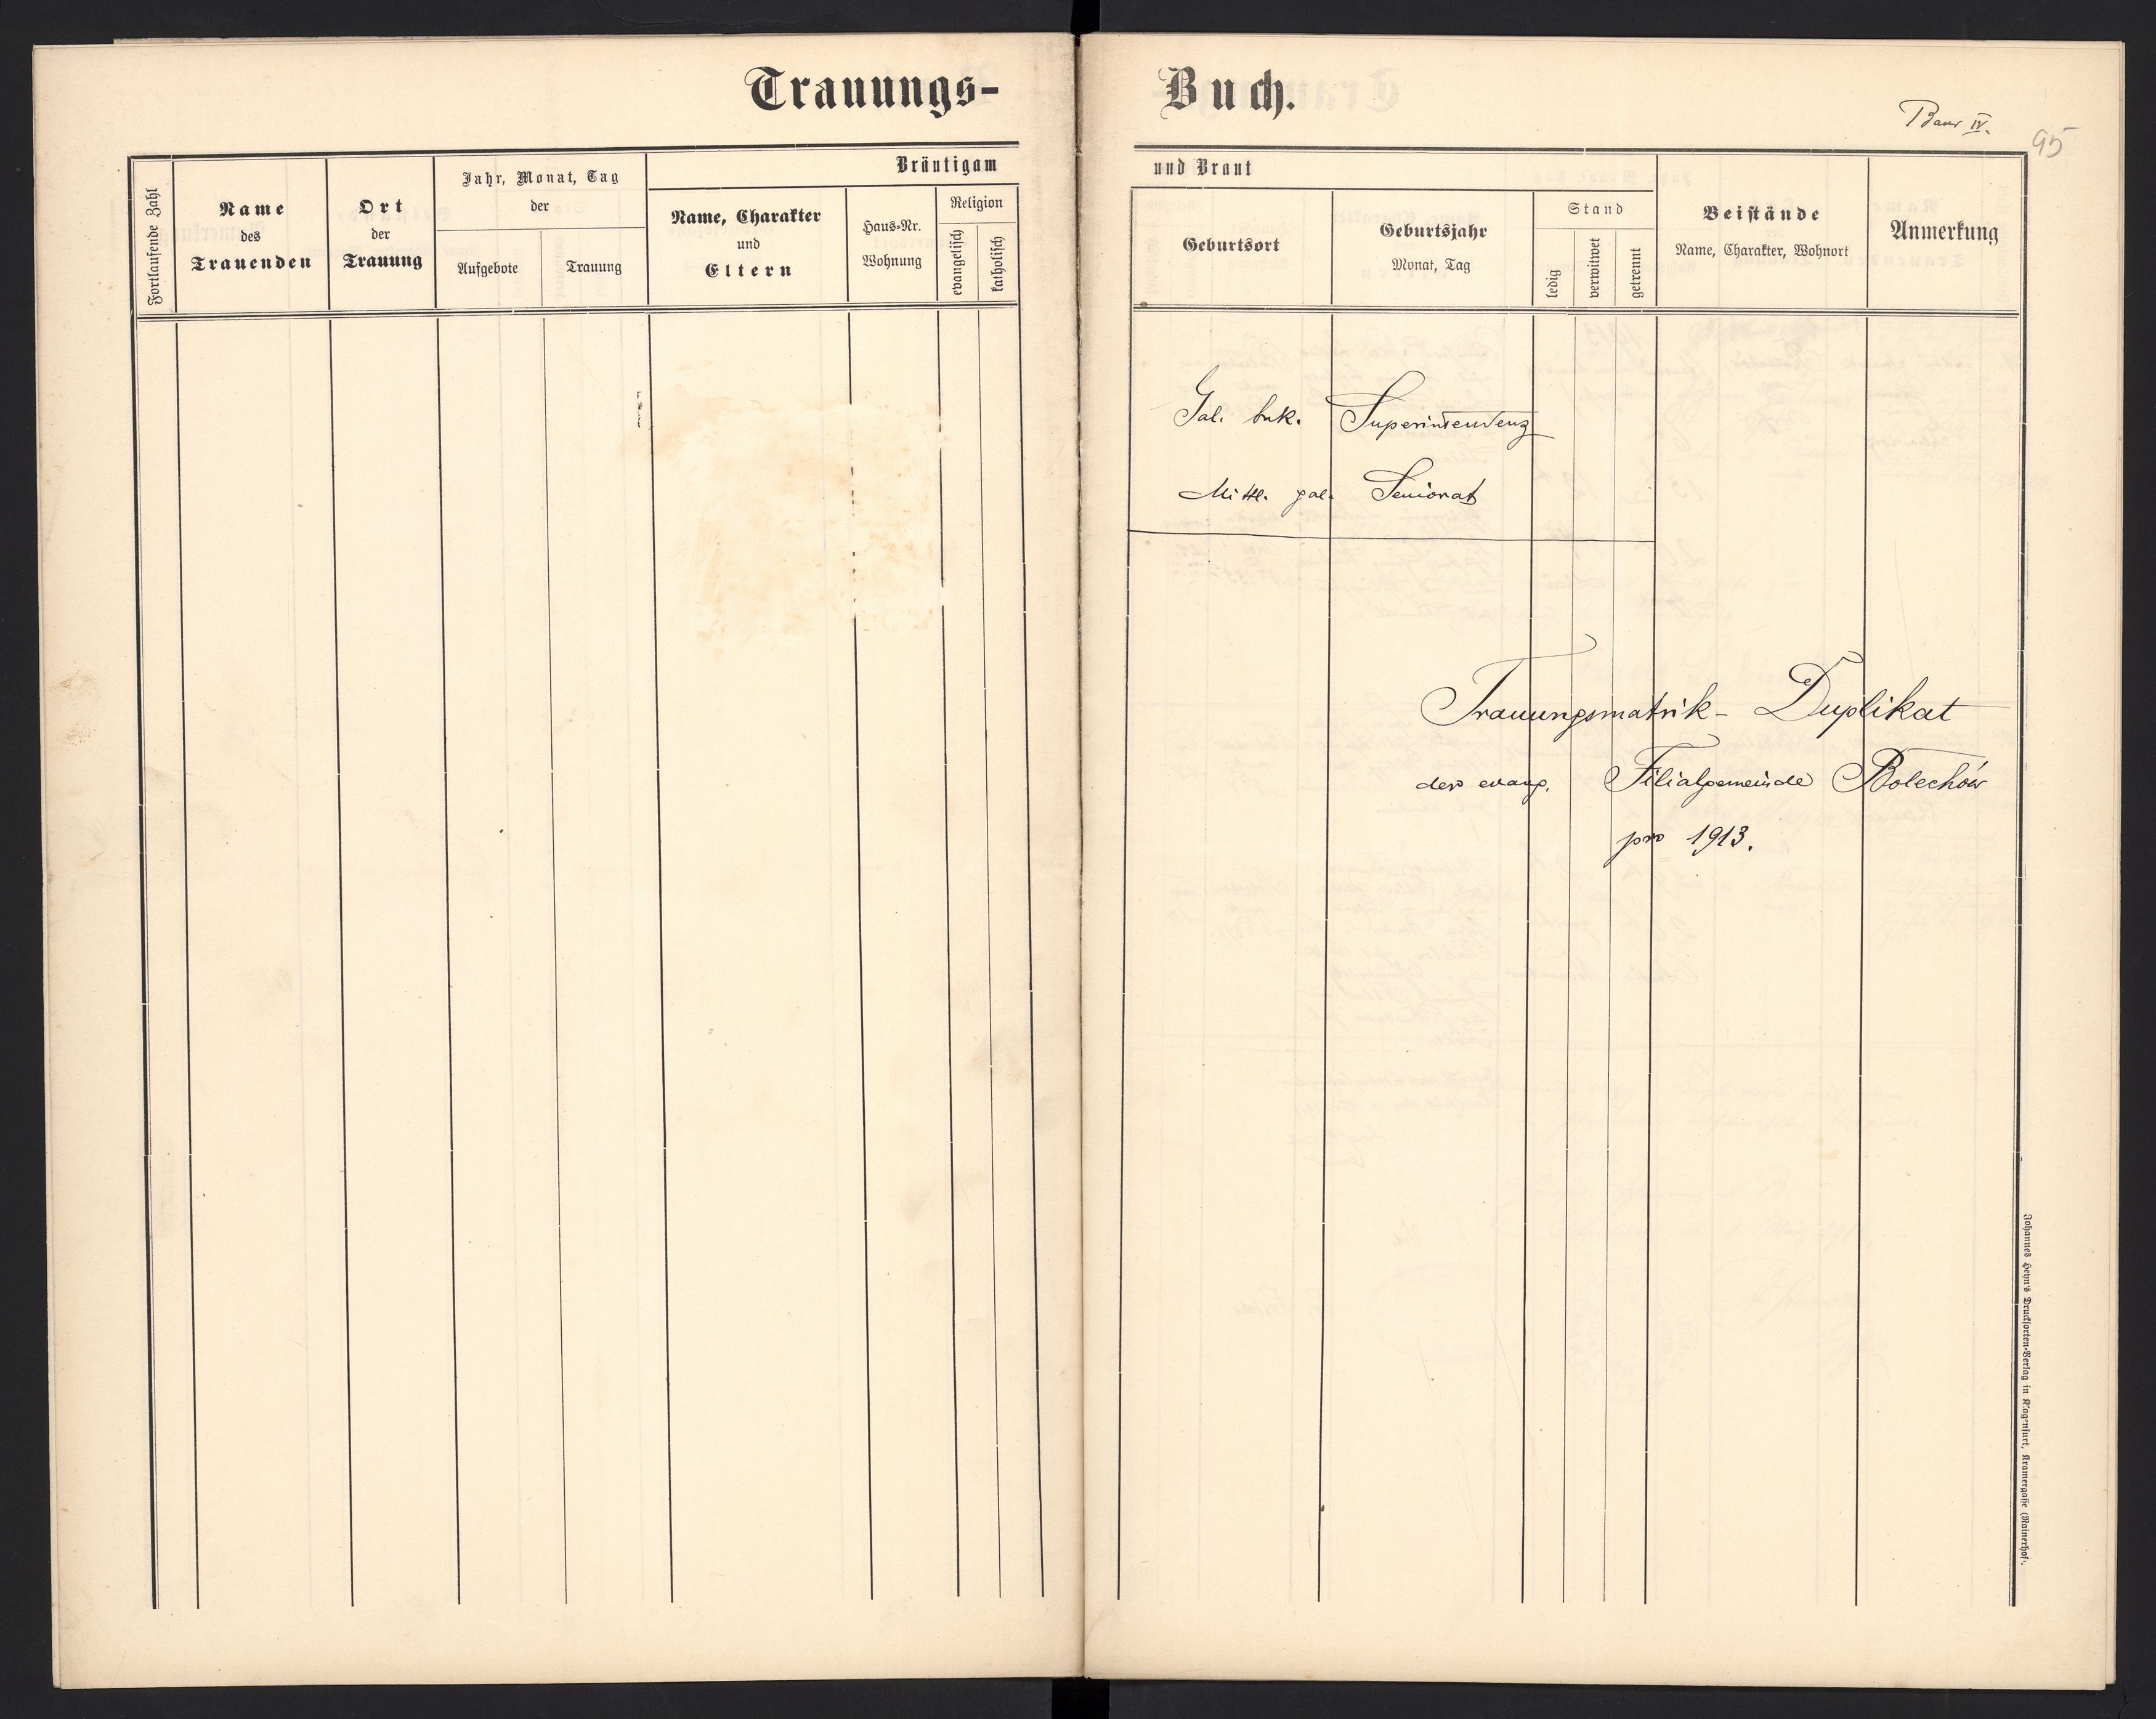 Trauungs-
Fortlaufende Zahl
Name
des
Trauenden
Ort
der
Trauung
Jahr, Monat, Tag
der
Aufgebote
Trauung
Bräutigam
Name, Charakter
und
Eltern
Haus-Nr.
Wohnung
Religion
evangelisch
katholisch
Buch.
IV.
95
und Braut
Geburtsort
Geburtsjahr
Monat, Tag
Stand
ledig
verwitwet
getrennt
Beistände
Name, Charakter, Wohnort
Anmerkung
Gal. buk. Superintendenz
Mittl. gal. Seniorat
Trauungsmatrik- Duplikat
der evang. Filialgemeinde Bolechów
pro 1913.
Johannes Heyn's Drucksorten-Verlag in Klagenfurt, Kramergasse (Rainerhof).